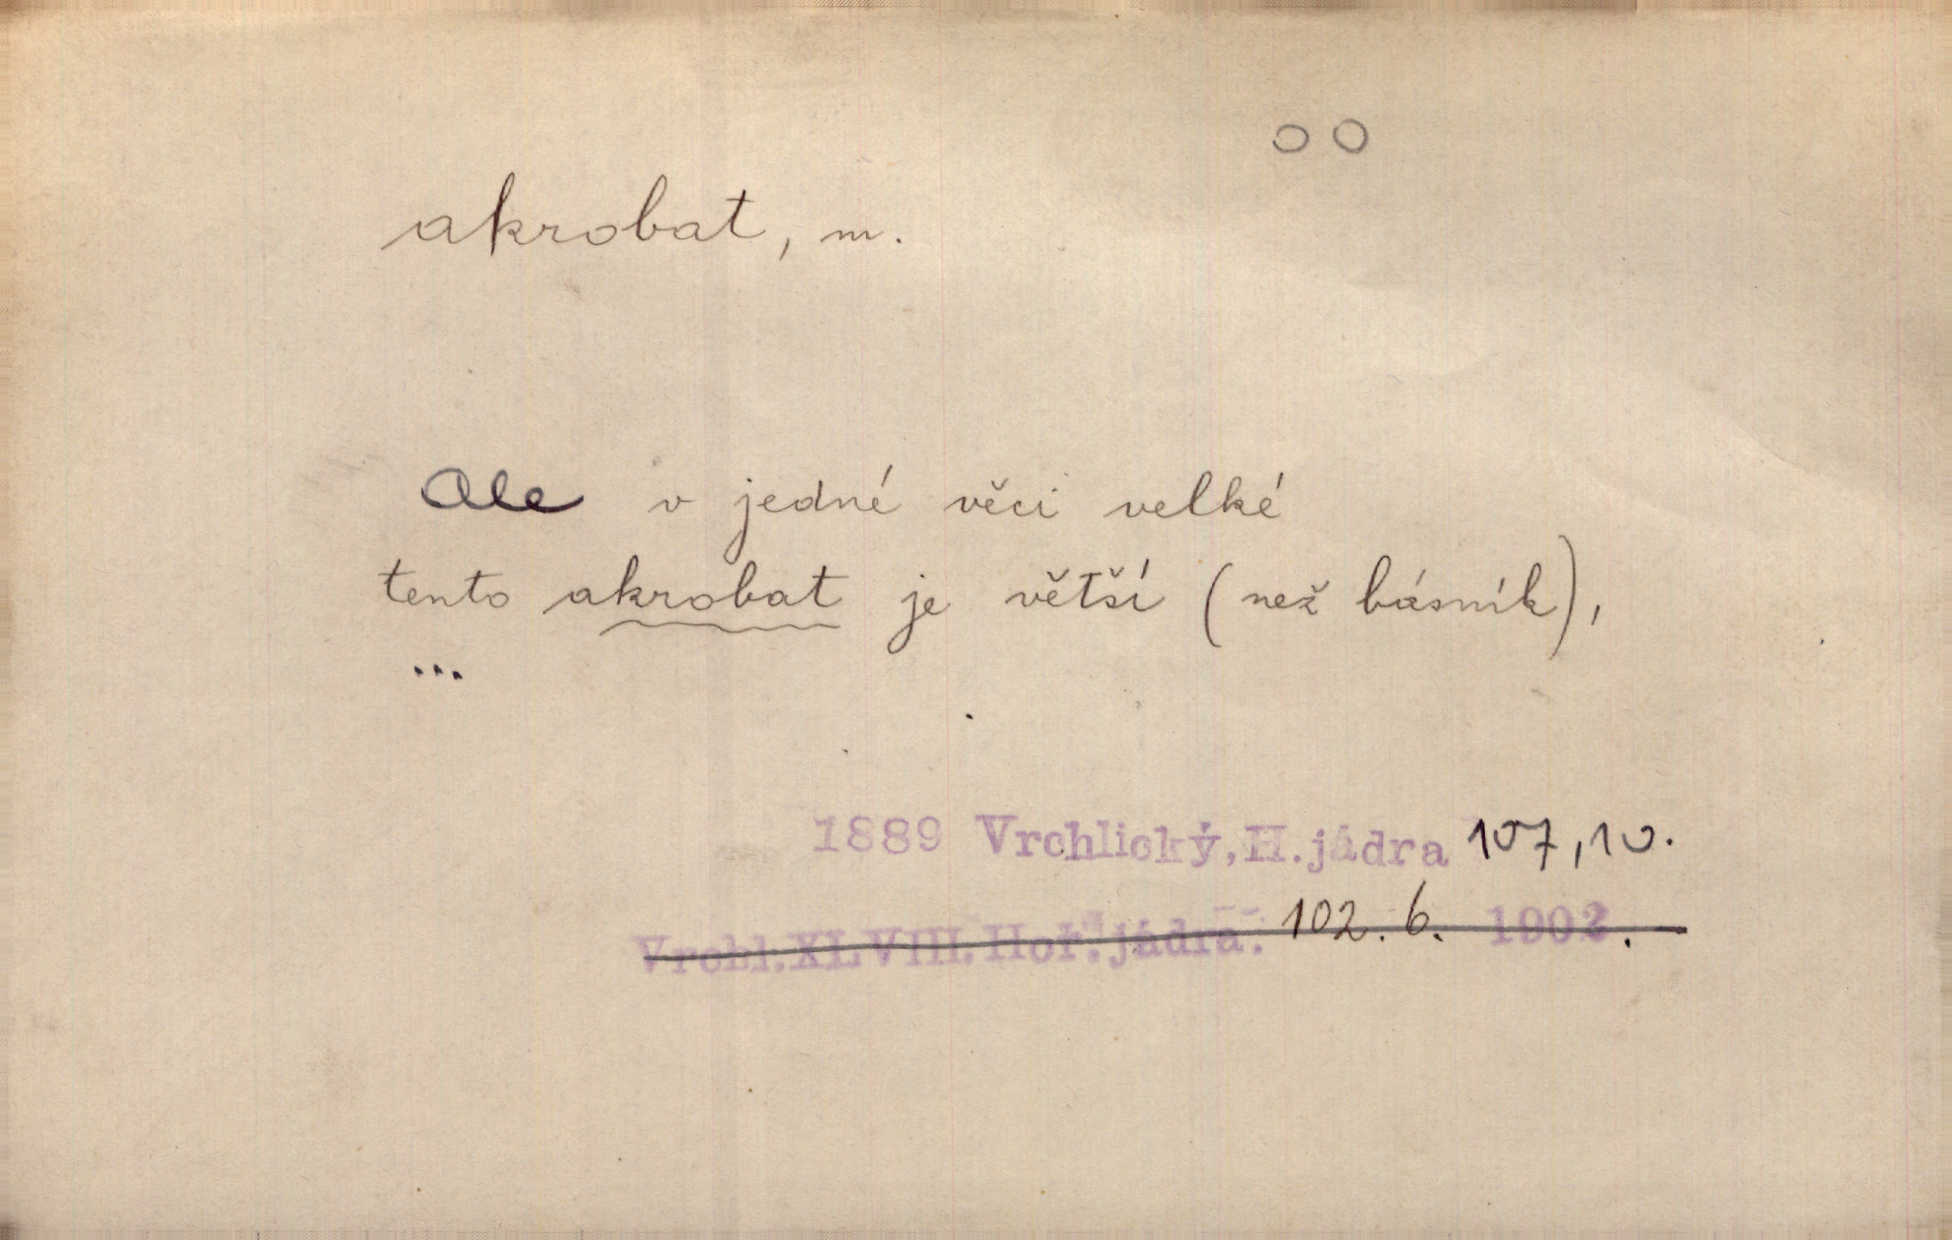 oo
akrobat, m.
Ale v jedné věci velké
tento akrobat je větší (než básník),
...
1889 Vrchlický, H.jádra 107,10.
Vrchl.XLVIII.Hoř.jádra. 102.6. 1902.